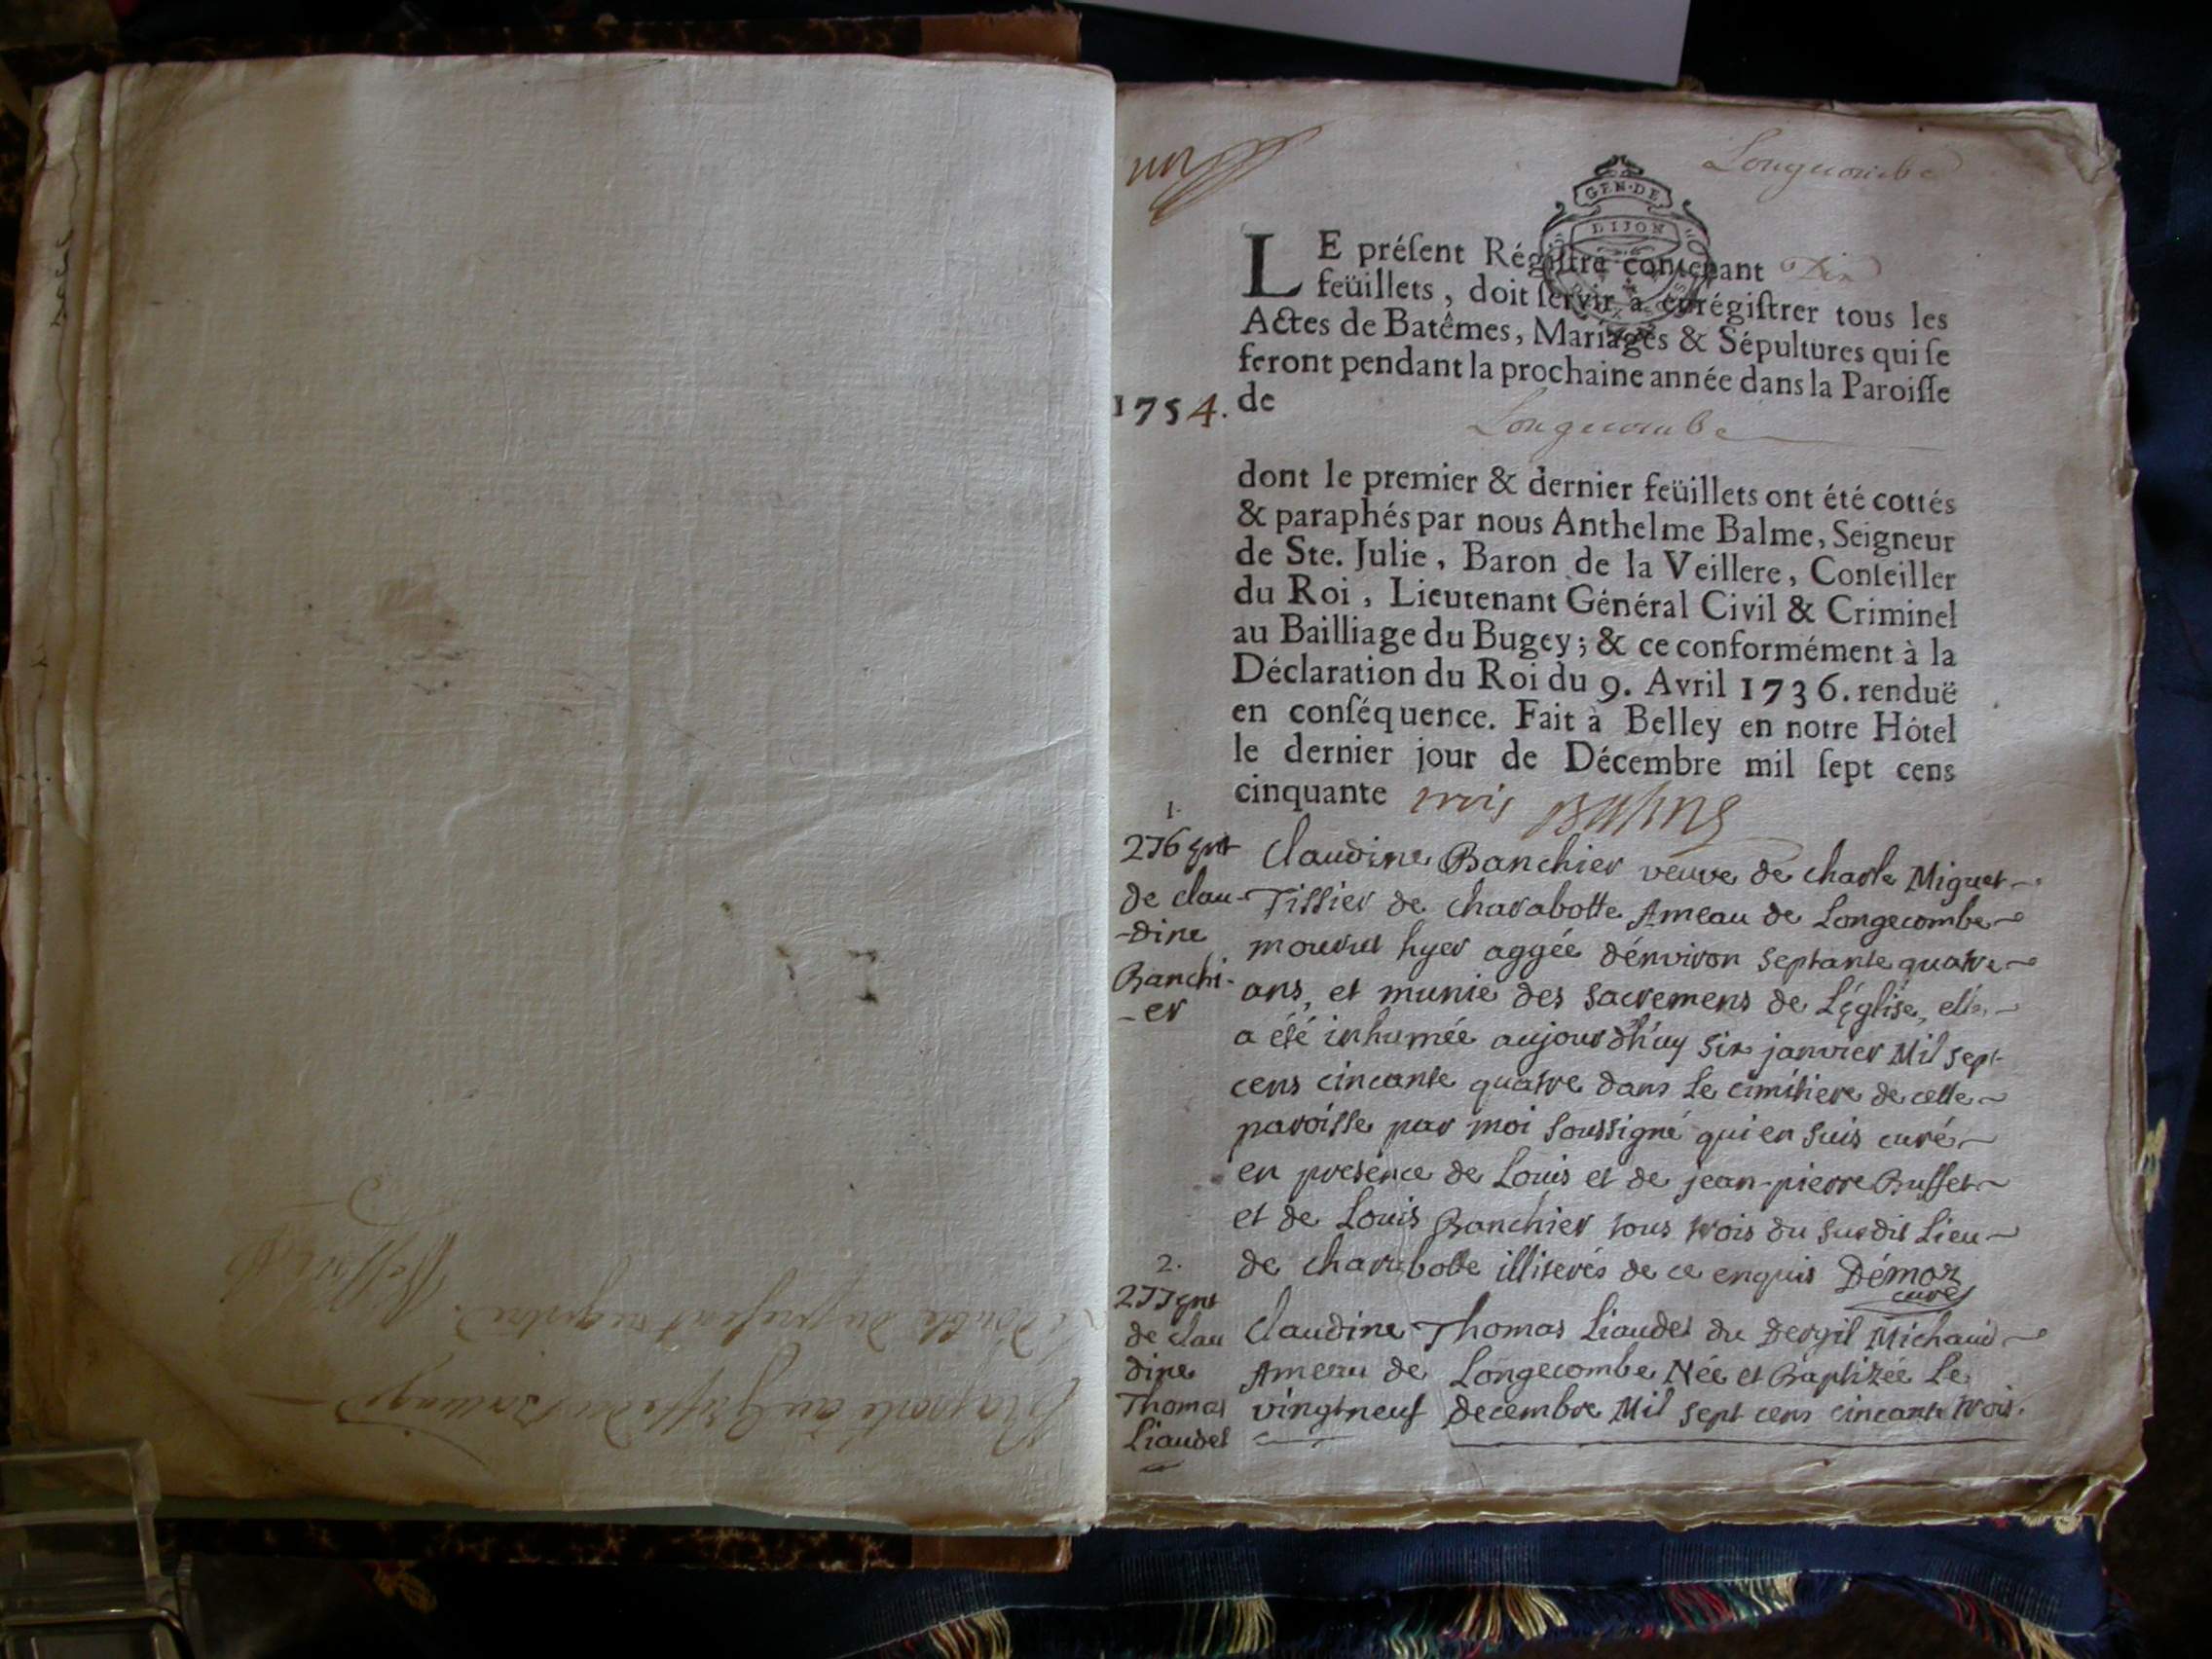 Rapporté au Greffe du Bailliage
le double du present registre.
un
Longecombe
GEN·DE
DIJON
LE préſent Régiſtre contenant Dix
feüillets, doit ſervir à enrégiſtrer tous les
Actes de Batêmes, Mariages & Sépultures qui ſe
feront pendant la prochaine année dans la Paroiſſe
1754. de
Longecombe
dont le premier & dernier feüillets ont été cottés
& paraphés par nous Anthelme Balme, Seigneur
de Ste. Julie, Baron de la Veillere, Conſeiller
du Roi, Lieutenant Général Civil & Criminel
au Bailliage du Bugey; & ce conformément à la
Déclaration du Roi du 9. Avril 1736. renduë
en conſéquence. Fait à Belley en notre Hôtel
le dernier jour de Décembre mil ſept cens
cinquante trois Balme
1.
276 ent
de clau-
-dine
Banchi-
-er
Claudine Banchier veuve de charle Miguet
Tissier de charabotte Ameau de Longecombe
mourut hyer aggée d'énviron septante quatre
ans, et munie des sacremens de L'église, elle
a été inhumée aujourd'huy six janvier Mil sept
cens cincante quatre dans Le cimitiere de cette
paroisse par moi soussigné qui en suis curé
en presence de Louis et de jean-pierre Buffet
et de Louis Banchier tous trois du susdit Lieu
de charabotte illiterés de ce enquis Démoz
curé
2.
277 ent
de clau
dine
Thomas
Liaudet
Claudine Thomas Liaudet du Dergit Michaud
Ameau de Longecombe Née et Baptizée Le
vingtneuf decembre Mil sept cens cincante trois.